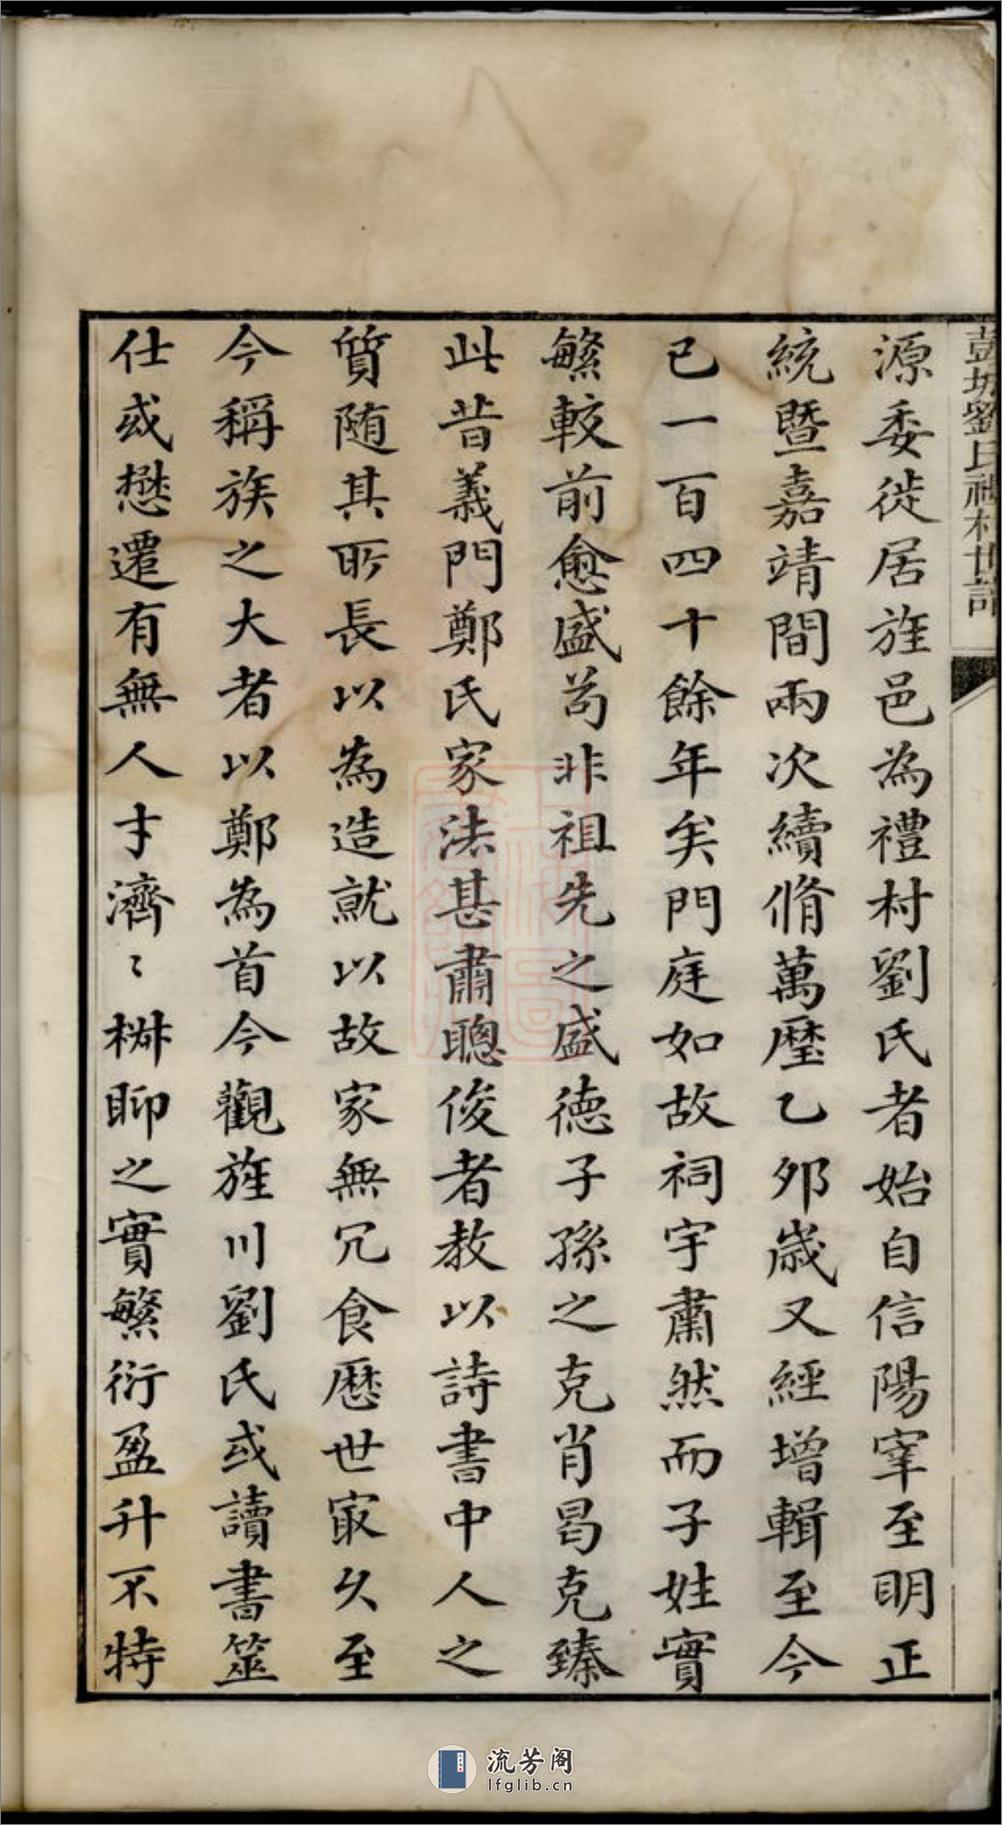 彭城劉氏禮村世譜
源委徙居旌邑為禮村劉氏者始自信陽宰至明正
統暨嘉靖間兩次續脩萬歷乙夘歲又經增輯至今
已一百四十餘年矣門庭如故祠宇肅然而子姓實
繁較前愈盛茍非祖先之盛德子孫之克肖曷克臻
此昔義門鄭氏家法甚肅聰俊者教以詩書中人之
質随其所長以為造就以故家無冗食歷世最久至
今稱族之大者以鄭為首今觀旌川劉氏或讀書筮
仕或懋遷有無人才濟〻椒聊之實繁衍盈升不特
流芳阁
lfglib.cn